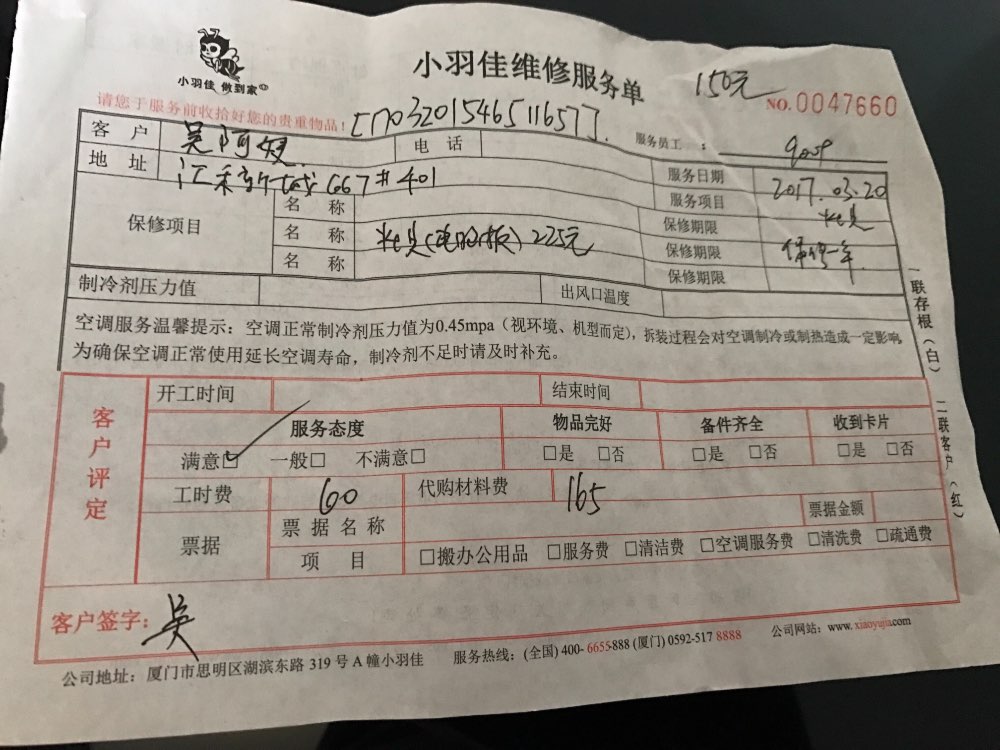 小羽佳 做到家
小羽佳维修服务单
150元
NO.0047660
请您于服务前收拾好您的贵重物品！
服务员工：
客户 吴阿 电话
地址 汇禾新城667#401
服务日期 2017.03.20
服务项目 灶具
保修项目
名称 保修期限
名称 灶具(电脉板)225元 保修期限 保修一年
名称 保修期限
制冷剂压力值 出风口温度
空调服务温馨提示：空调正常制冷剂压力值为0.45mpa（视环境、机型而定），拆装过程会对空调制冷或制热造成一定影响
为确保空调正常使用延长空调寿命，制冷剂不足时请及时补充。
一联存根（白） 二联客户（红）
客户评定
开工时间 结束时间
服务态度 物品完好 备件齐全 收到卡片
满意☑ 一般□ 不满意□ □是 □否 □是 □否 □是 □否
工时费 60 代购材料费 165
票据 票据名称 票据金额
项目 □搬办公用品 □服务费 □清洁费 □空调服务费 □清洗费 □疏通费
客户签字：吴
公司地址：厦门市思明区湖滨东路 319 号 A 幢小羽佳 服务热线：(全国) 400- 6655-888 (厦门) 0592-517 8888 公司网站：www. xiaoyujia.com